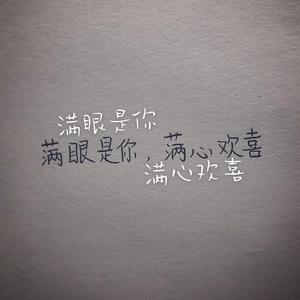 满眼是你
满眼是你，满心欢喜
满心欢喜